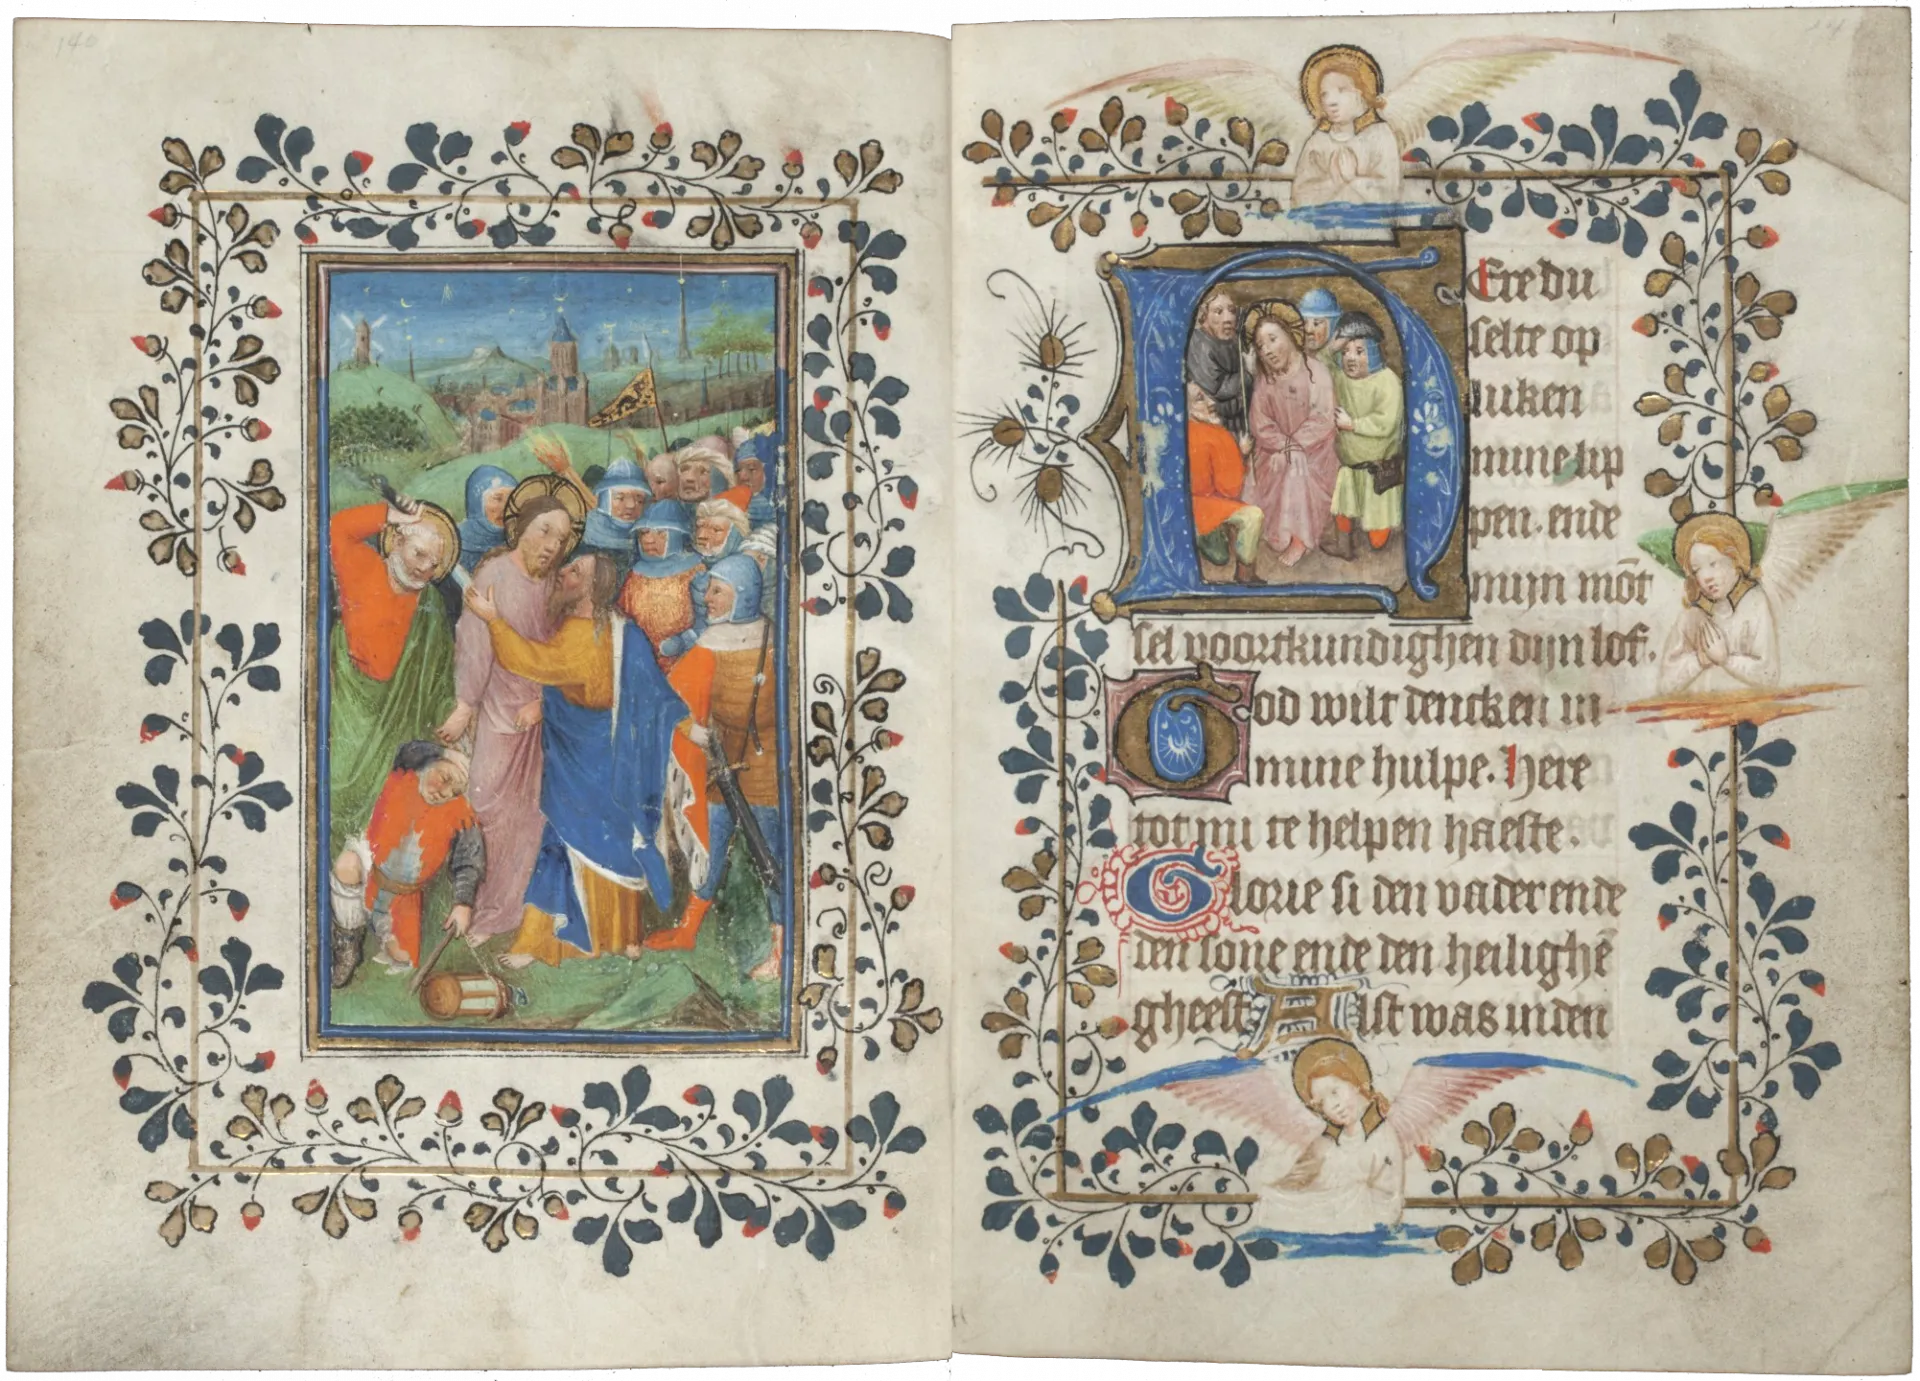 140
HEre du
selte op
luken
mine lip
pen. ende
mijn mōt
sel voortkundighen dijn lof.
God wilt dencken in
mine hulpe. Here
tot mi te helpen haeste.
Glorie si den vader ende
den sone ende den heilighē
gheest Alst was inden